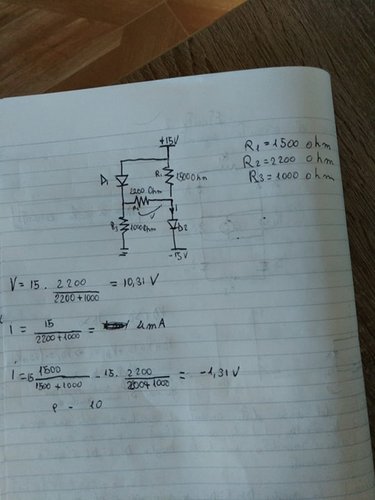 +15V
R1 = 1500 ohm
R2 = 2200 ohm
R3 = 1000 ohm
D1
R1
1500 Ohm
2200 Ohm
R2
V
I
R3
1000 Ohm
D2
-15V
V = 15 · 2200 / 2200 + 1000 = 10,31 V
I = 15 / 2200 + 1000 = 4mA
I = 15 1500 / 1500 + 1000 - 15 · 2200 / 2200 + 1000 = -1,31 V
10